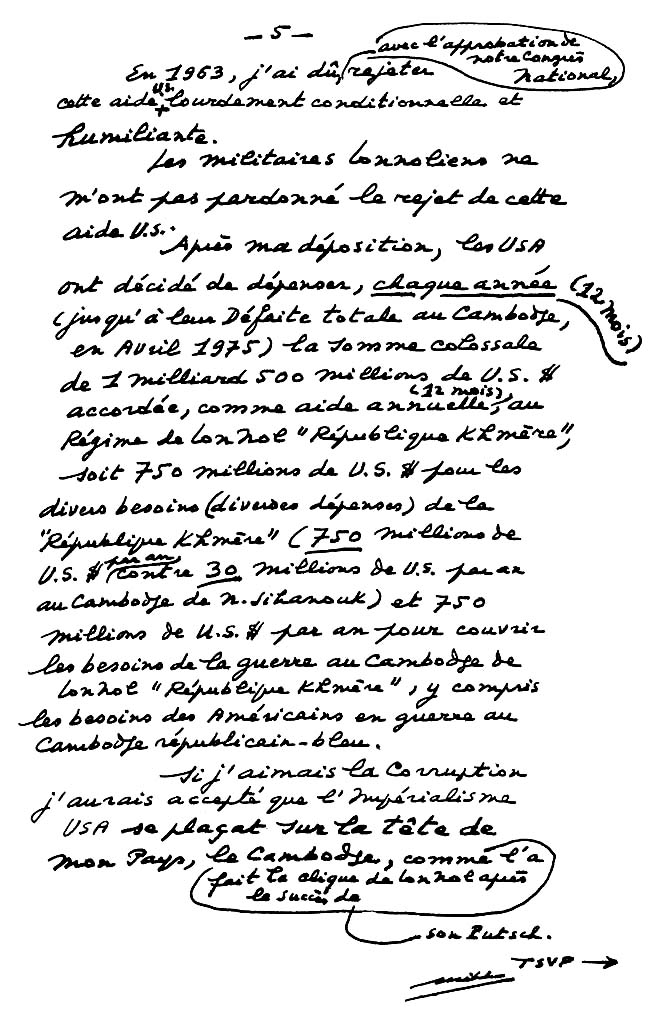 — 5 —
avec l'approbation de
notre Congrès
National,
En 1963, j'ai dû, rejeter
cette aide U.S. lourdement conditionnelle et
humiliante.
Les militaires lonnoliens ne
m'ont pas pardonné le rejet de cette
aide U.S..
Après ma déposition, les USA
ont décidé de dépenser, chaque année (12 mois)
(jusqu'à leur Défaite totale au Cambodge,
en Avril 1975) la somme colossale
de 1 milliard 500 millions de U.S. $
accordée, comme aide annuelle, (12 mois), au
Régime de Lon Nol "République Khmère",
soit 750 millions de U.S. $ pour les
divers besoins (diverses dépenses) de la
"République Khmère" (750 millions de
U.S. $ par an, contre 30 millions de U.S. par an
au Cambodge de N. Sihanouk) et 750
millions de U.S. $ par an pour couvrir
les besoins de la guerre au Cambodge de
Lon Nol "République Khmère", y compris
les besoins des Américains en guerre au
Cambodge républicain-bleu.
Si j'aimais la Corruption
j'aurais accepté que l'Impérialisme
USA se plaçat sur la tête de
mon Pays, le Cambodge, comme l'a
fait la clique de Lon Nol après
le succès de
son Putsch.
TSVP →